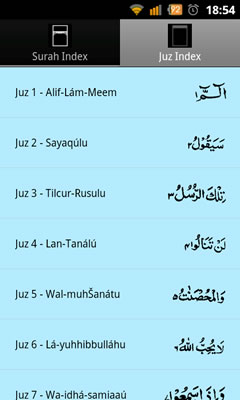 92 18:54
Surah Index Juz Index
Juz 1 - Alif-Lám-Meem الٓمّٓ ١
Juz 2 - Sayaqúlu سَيَقُوْلُ ٢
Juz 3 - Tilcur-Rusulu تِلْكَ الرُّسُلُ ٣
Juz 4 - Lan-Tanálú لَنْ تَنَالُوا ٤
Juz 5 - Wal-muhŠanátu وَالْمُحْصَنٰتُ ٥
Juz 6 - Lá-yuhhibbulláhu لَا يُحِبُّ اللّٰهُ ٦
Juz 7 - Wa-idhá-samiaaú وَاِذَا سَمِعُوْا ٧